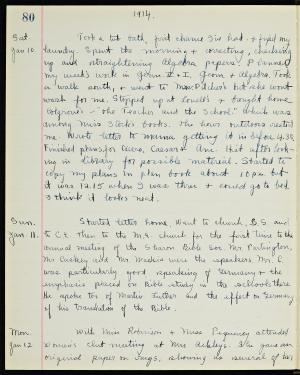 80
1914.
Sat.
Jan 10.
Took a tub bath, first chance I've had. & fixed my
laundry. Spent the morning + correcting, checking
up and straightening Algebra papers. Planned
my week's work in Geom II + I, Geom + Algebra. Took
a walk south, & went to Mrs Pilcher's but she won't
wash for me. Stopped up at Lovell's & bought home
Colgrove - The Teacher and the School" which was
among Miss Stock's books. She has outlines rested
me. Wrote letter to mamma getting it in before 4.30
Finished plans for Cicero, Caesar + Anc. Hist after look-
ing in library for possible material. Started to
copy my plans in plan book about 10 p.m. but
it was 12.15 when I was through & could go to bed.
I think it looks neat.
Sun.
Jan 11.
Started letter home. Went to church, S.S. and
to C.E. Then to the M.E. church for the first time to the
annual meeting of the Sharon Bible Soc. Mr Partington,
Mr Caskey and Mr Meakin were the speakers. Mr. C.
was particularly good speaking of Germany & the
emphasis placed on Bible study in the schools there
He spoke too of Martin Luther and the effect on Germany
of his translation of the Bible.
Mon.
Jan 12
With Miss Robinson & Miss Pequegney attended
women's club meeting at Mrs Ackley's. She gave an
original paper on Jugs, showing us several of her